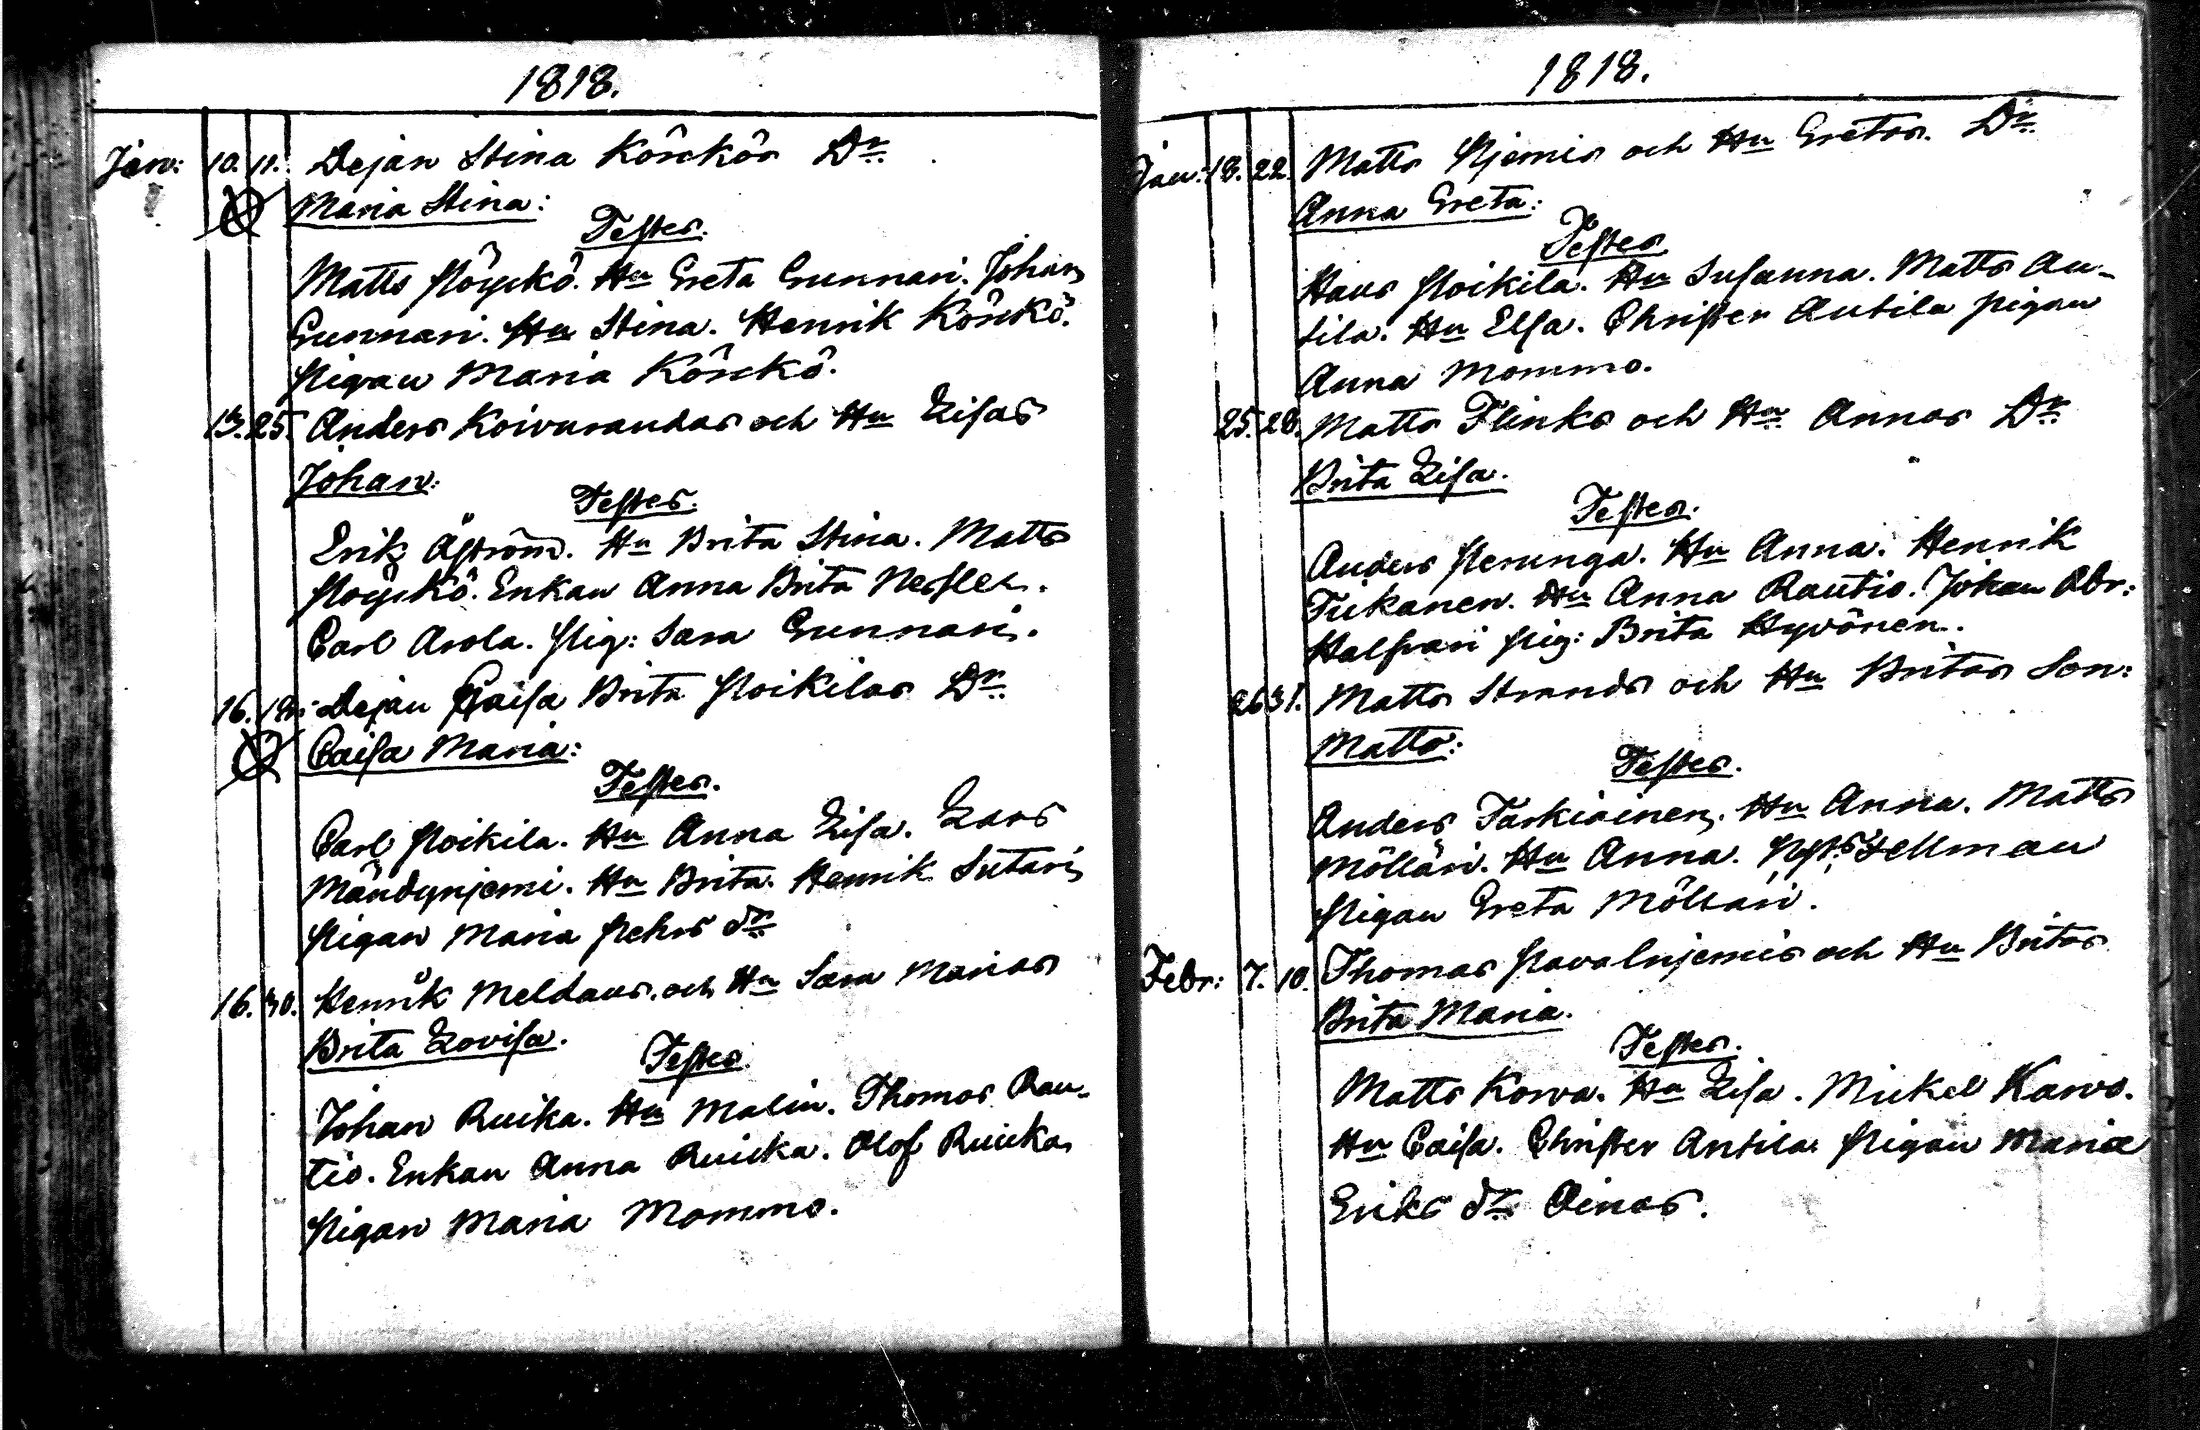 1818.
Jan: 10. 11. Dejan Stina Körckös Dr.
Maria Stina:
Testes.
Matts Pöyckö. Hu Greta Gunnari. Johan
Gunnari. Hu Stina. Henrik Körckö.
Pigan Maria Körckö.
13. 25. Anders Koivurandas och Hu Lisas
Johan:
Testes.
Erik Åström. Hu Brita Stina. Matts
Pöyckö. Enkan Anna Brita
Carl Arola. Pig: Sara Gunnari.
16. Dejan Caisa Brita Poikilas Dr.
Caisa Maria:
Testes.
Carl Poikila. Hu Anna Lisa. Lars
Mändynjemi. Hu Brita. Henrik Sutari
Pigan Maria Pehrs dr
16. 30. Henrik Meldaus. och Hu Sara Marias
Brita Lovisa.
Testes
Johan Ruika. Hu Malin. Thomas Rau-
tio. Enkan Anna Ruicka. Olof Ruicka
Pigan Maria Mommo.
1818.
Jan: 18. 22. Matts Njemis och Hu Gretas. Dr.
Anna Greta:
Testes
Hans Poikila. Hu Susanna. Matts An-
tila. Hu Elsa. Christer Antila pigan
Anna Mommo.
25. 28. Matts Flinks och Hu Annas Dr.
Brita Lisa.
Testes.
Anders Perunga. Hu Anna. Henrik
Tiikanen. Hu Anna Rautio. Johan Abr:
Halfvari Pig: Brita Hyvönen.
26 31. Matts Strands och Hu Britas Son:
Matts:
Testes.
Anders Tarkiainen. Hu Anna. Matts
Möllari. Hu Anna. Fellman
Pigan Greta Möllari.
Febr: 7. 10. Thomas Pavalnjemis och Hu Britas
Brita Maria.
Testes.
Matts Korva. Hu Lisa. Mickel Karvo.
Hu Caisa. Christer Antila. Pigan Maria
Eriks dr. Oinas.